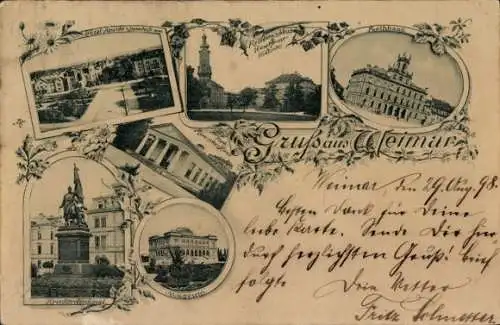 Rathhaus
Gruß aus Weimar
Kriegerdenkmal
Museum
Weimar den 29. Aug. 98.
Besten Dank für Deine
liebe Karte. Sende Dir hier
durch herzlichsten Gruß! Brief
folgt
Dein Vetter
Fritz